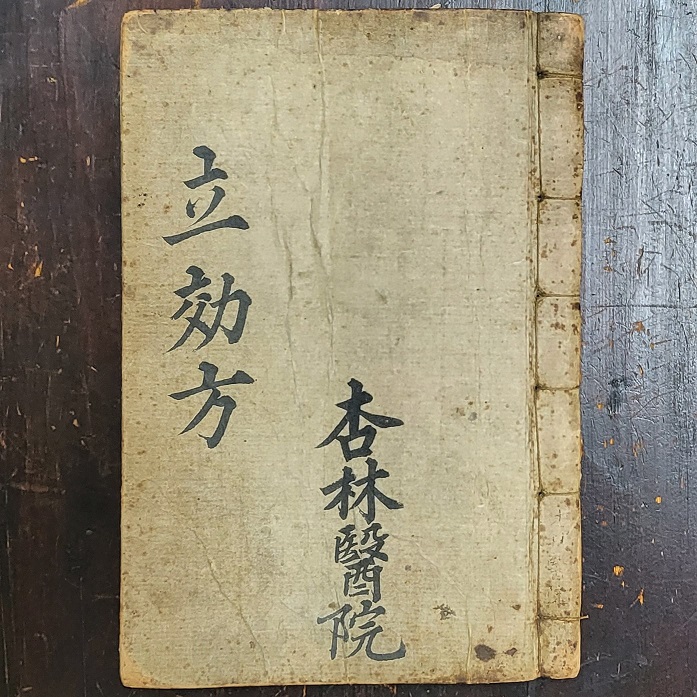 立効方
杏林醫院